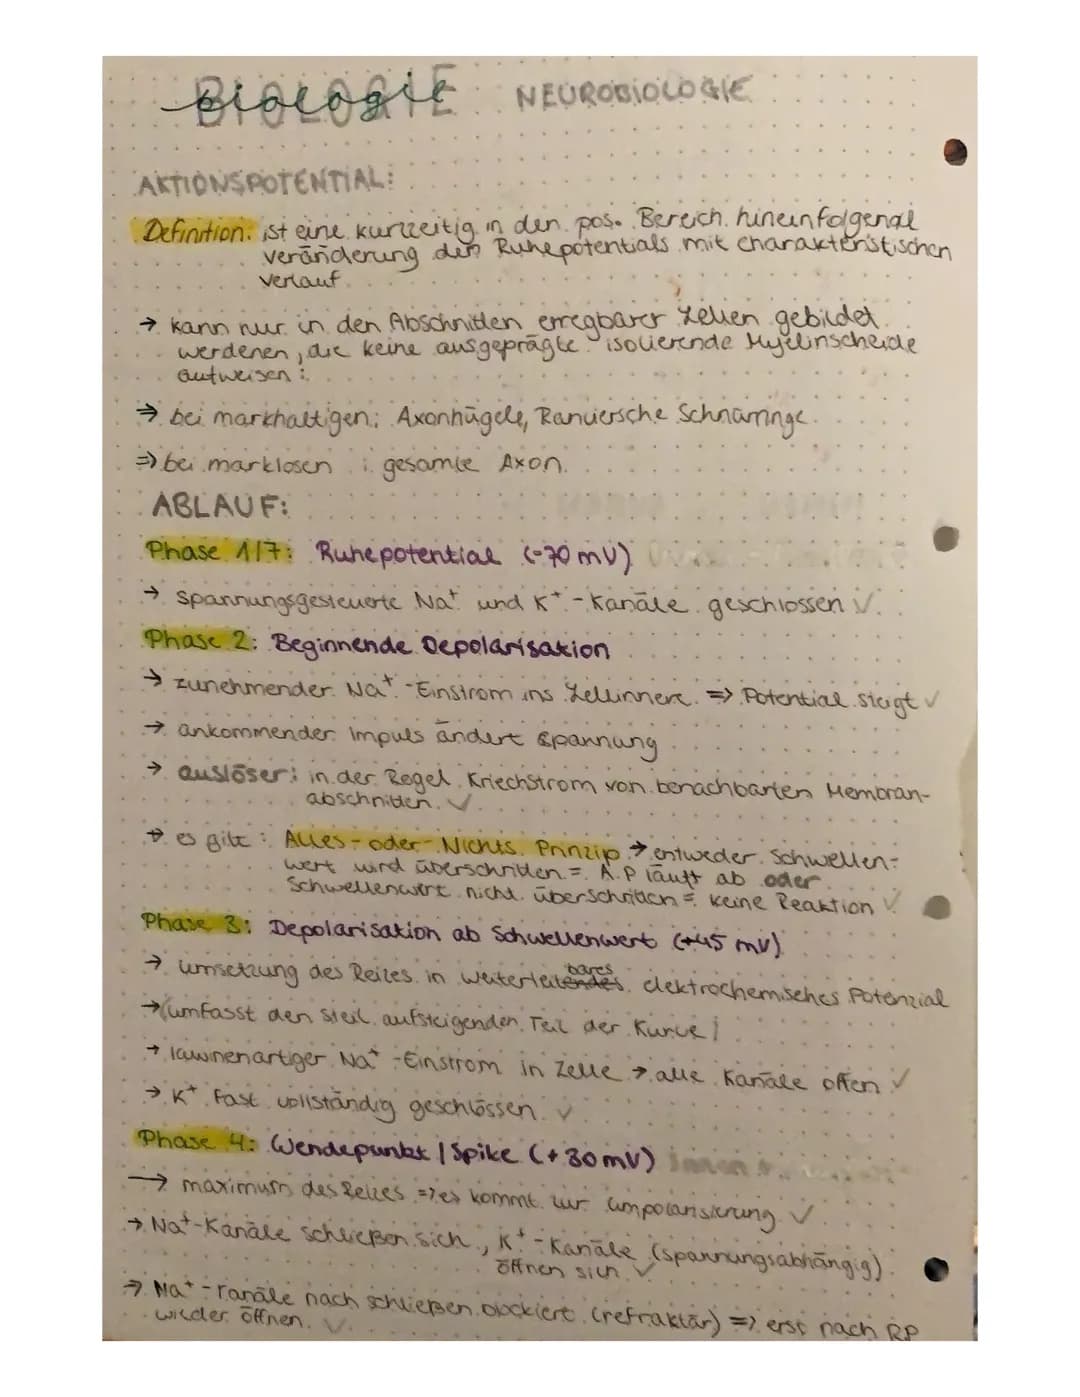 BIOLOGIE biologie NEUROBIOLOGIE
AKTIONSPOTENTIAL:
Definition: ist eine kurzzeitig in den pos. Bereich hineinfolgend
veränderung den Ruhepotentials mit charakteristischen
verlauf
→ kann nur in den Abschnitten erregbarer Zellen gebildet
werdenen, die keine ausgeprägte isolierende Myelinscheide
aufweisen:
⇒ bei markhaltigen: Axonhügele, Ranviersche Schnürringe
⇒ bei marklosen : gesamte Axon.
ABLAUF:
Phase 1/7: Ruhepotential (-70 mV)
→ Spannungsgesteuerte Na⁺ und K⁺-Kanäle geschlossen ✓
Phase 2: Beginnende Depolarisation
→ zunehmender Na⁺-Einstrom ins Zellinnere ⇒ Potential steigt ✓
→ ankommender Impuls ändert Spannung
→ auslöser: in der Regel Kriechstrom von benachbarten Membran-
abschnitten ✓
→ es gilt: Alles-oder-Nichts Prinzip → entweder Schwellen-
wert wird überschritten = A.P läuft ab oder
Schwellenwert nicht überschritten = keine Reaktion ✓
Phase 3: Depolarisation ab Schwellenwert (+45 mV)
→ Umsetzung des Reizes in weiterleitbares elektrochemisches Potenzial
→ (umfasst den steil aufsteigenden Teil der Kurve)
→ lawinenartiger Na⁺-Einstrom in Zelle → alle Kanäle offen ✓
→ K⁺ fast vollständig geschlossen ✓
Phase 4: Wendepunkt / Spike (+30mV)
→ maximum des Reizes ⇒ es kommt zur umpolarisierung ✓
→ Na⁺-Kanäle schließen sich, K⁺-Kanäle (spannungsabhängig)
öffnen sich ✓
→ Na⁺-Kanäle nach schließen blockiert (refraktär) ⇒ erst nach RP
wieder öffnen. ✓